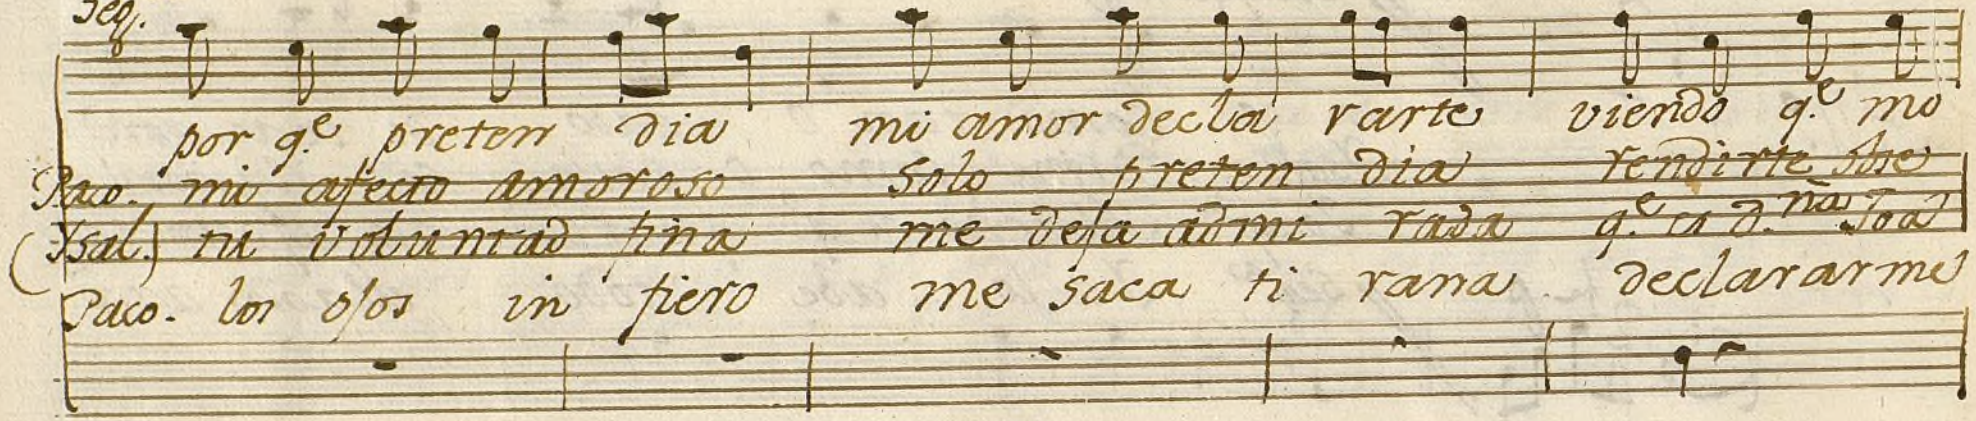 Seg.
por q.e preten dia mi amor decla rarte viendo q.e mo
Paco. mi afecto amoroso solo preten dia rendirte
(Ysal.) tu voluntad fina me deja admi rada q.e a d.ña Joa
Paco. los ojos in fiero me saca ti rana declararme